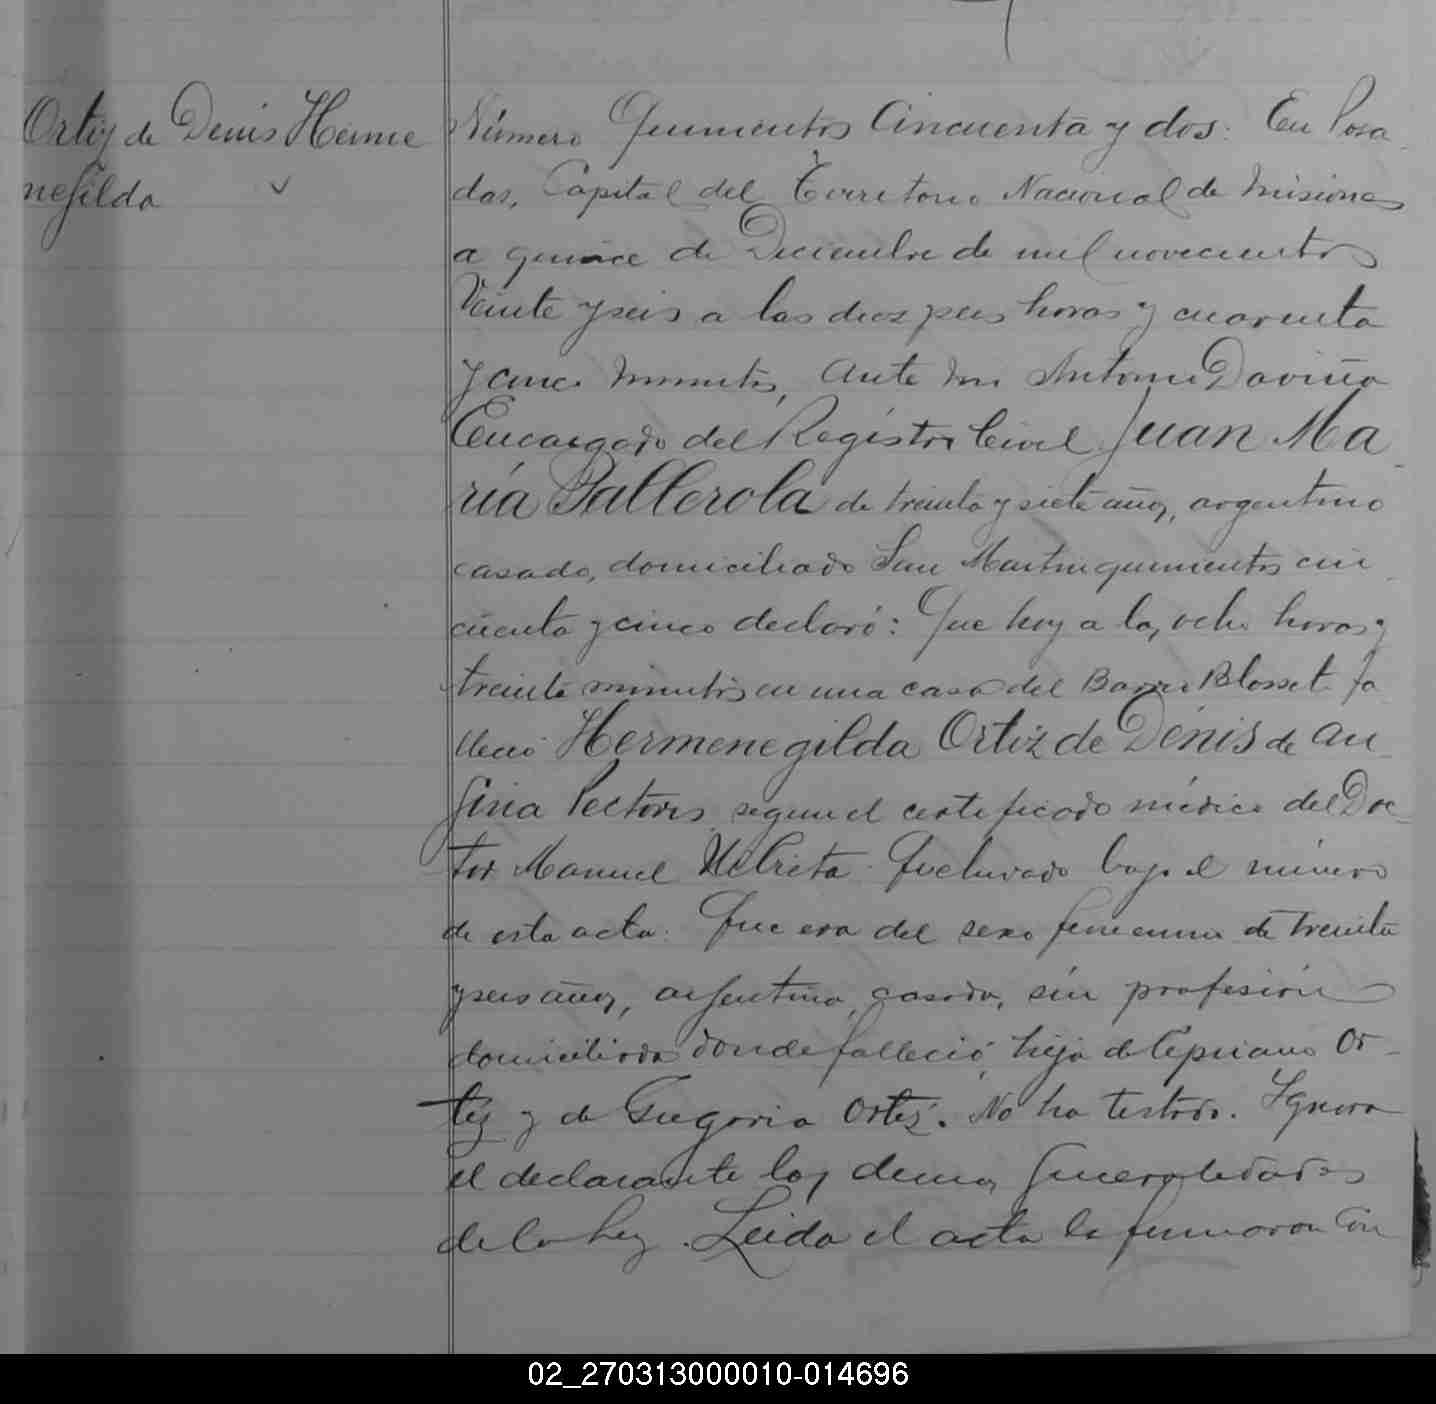 Ortiz de Denis Herme
negilda
Número Quinientos Cincuenta y dos: En Posa
das, Capital del Territorio Nacional de Misiones
a quince de Diciembre de mil novecientos
Veinte y seis a las diez y seis horas y cuarenta
y cinco minutos, ante mi Antonio Daviña
Encargado del Registro Civil Juan Ma
ría Pallerola de treinta y siete años, argentino
casado, domiciliado San Martin quinientos cin
cuenta y cinco declaró: Que hoy a las ocho horas y
treinta minutos en una casa del Barrio Blosset fa
lleció Hermenegilda Ortiz de Dénis de an
gina Pectoris segun el certificado médico del Doc
tor Manuel archivado bajo el número
de esta acta. Que era del sexo femenino de treinta
y seis años, argentina, casada, sin profesión
domiciliada donde falleció, hija de Cipriano Or
tiz y de Gregoria Ortiz. No ha testado. Ignora
el declarante las demas generalidades
de la ley. Leida el acta la firmaron con
02_270313000010-014696